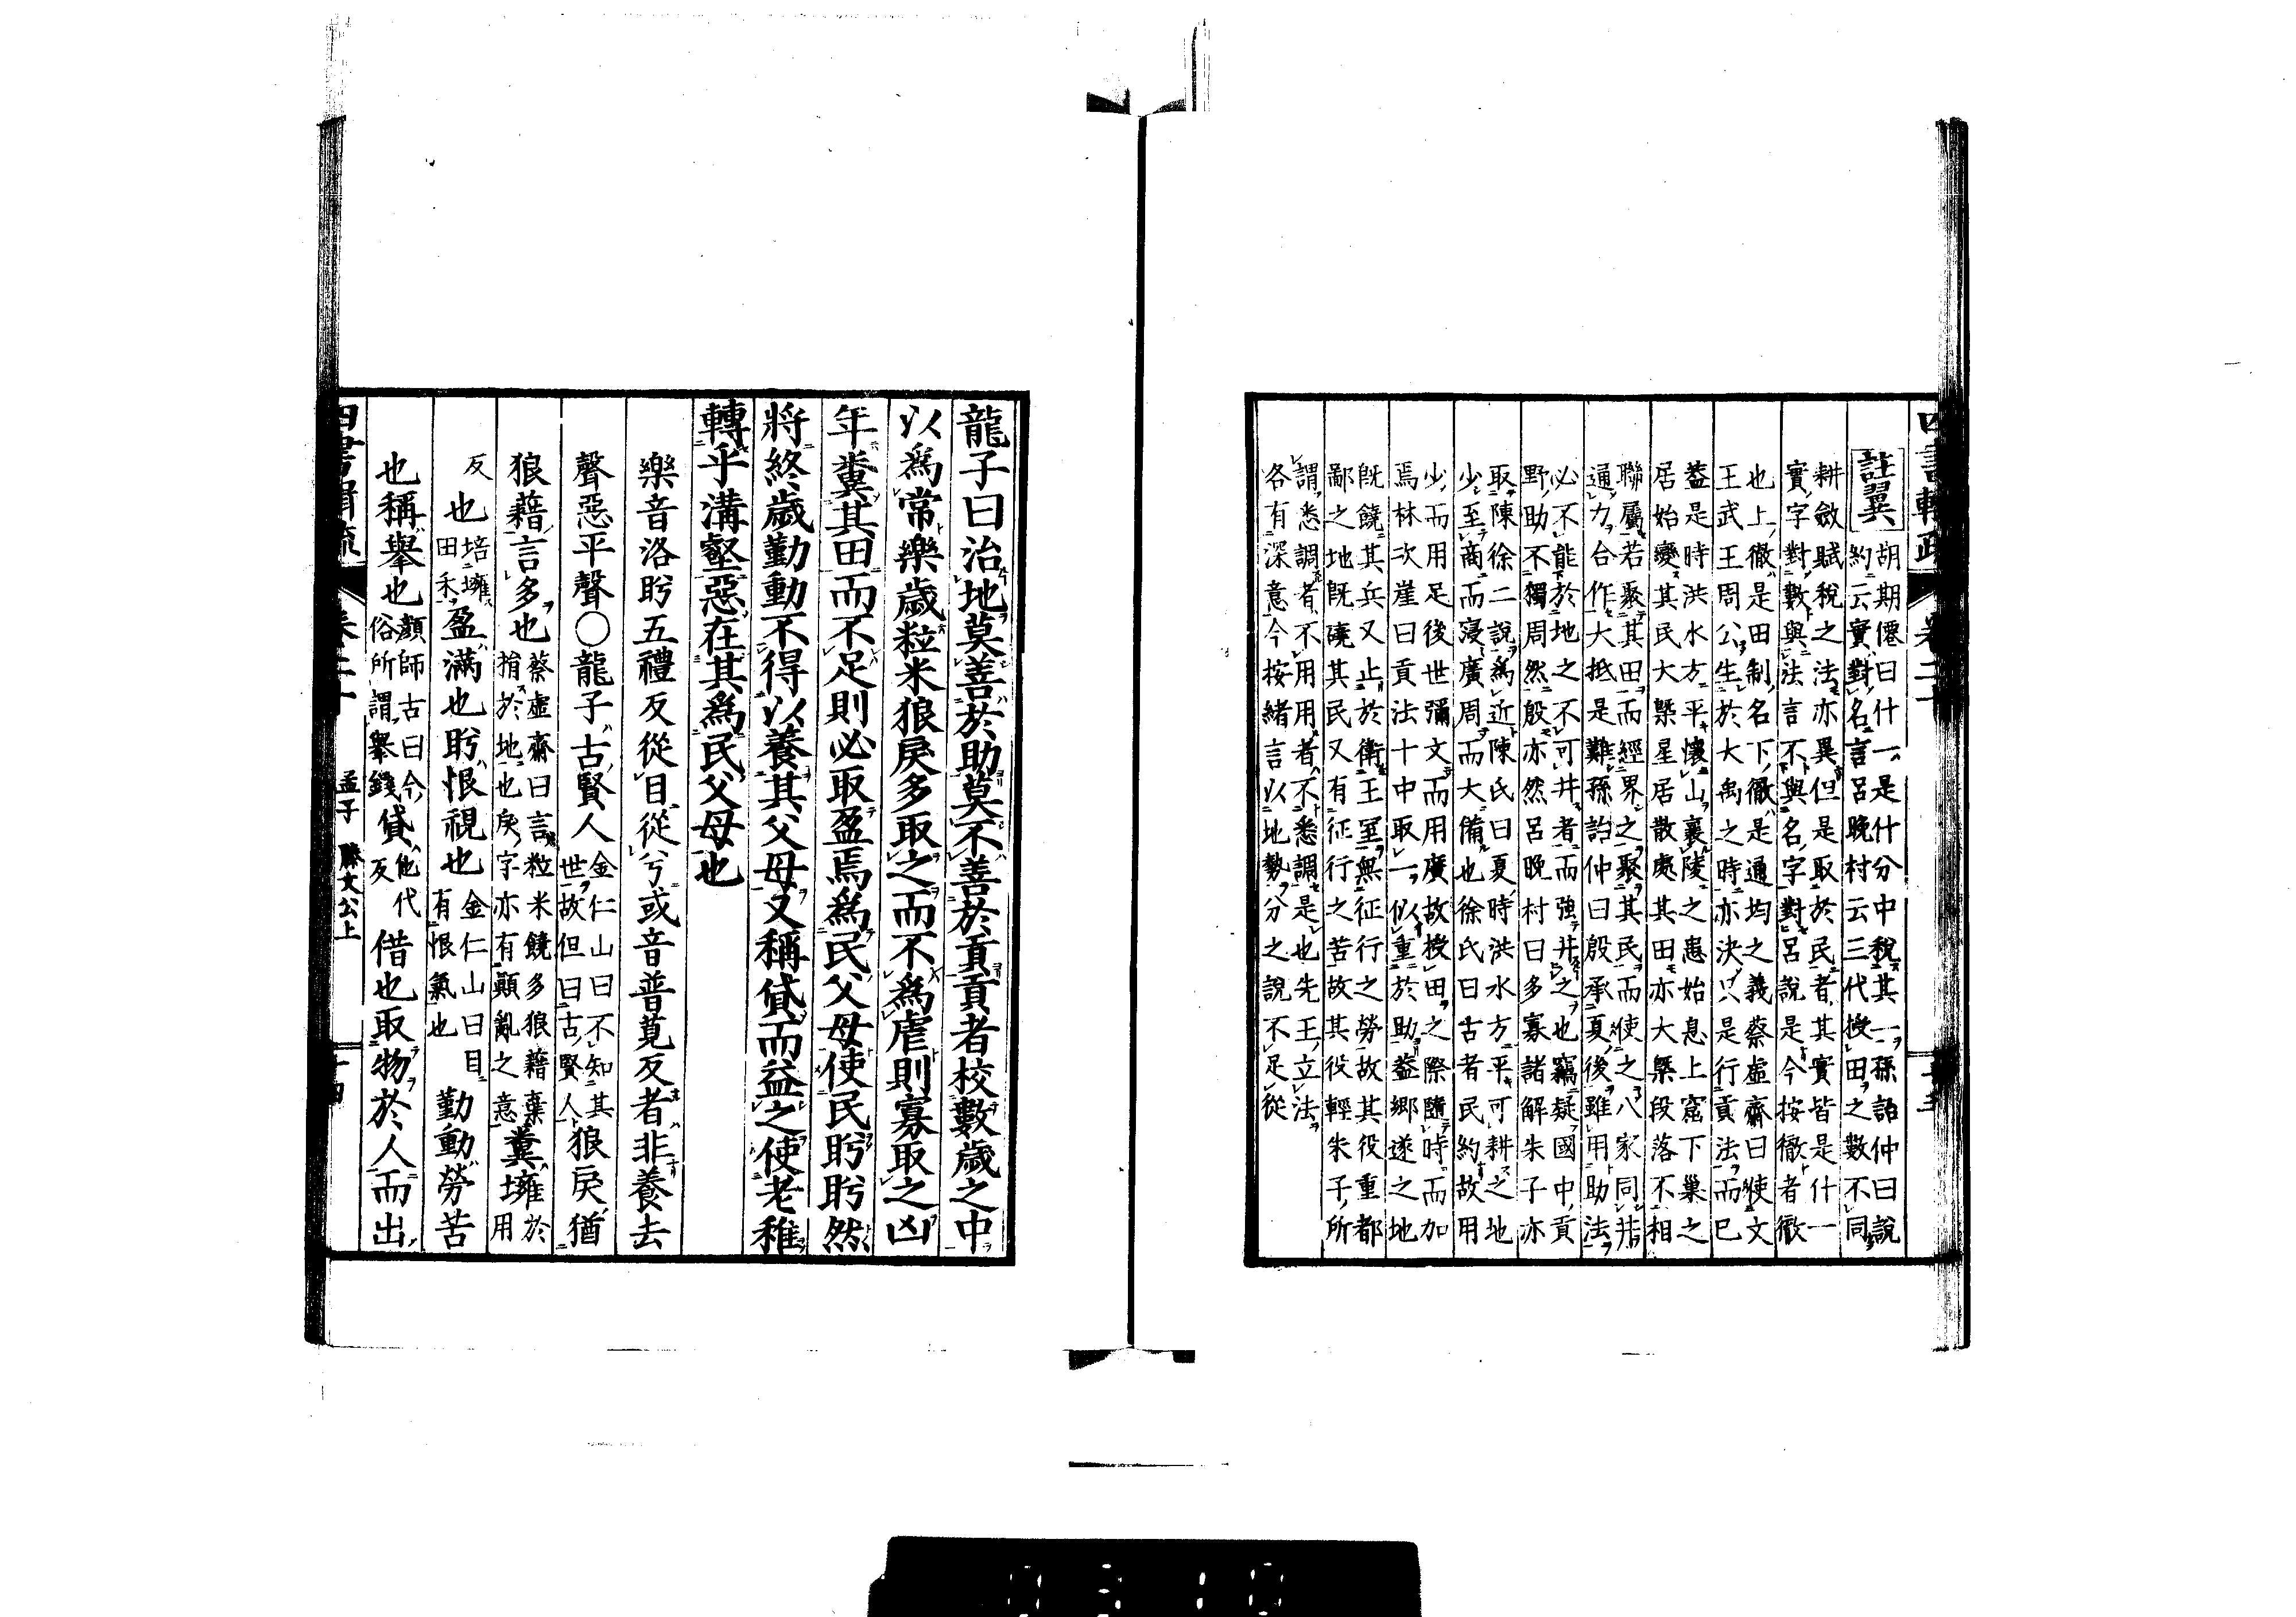 註翼
胡期僊曰什一是什分中稅其一孫詒仲曰說
約云實對名言呂晚村云三代授田之數不同
耕斂賦稅之法亦異但是取於民者其實皆是什一
實字對數與法言不與名字對呂說是今按徹者徹
也上徹是田制名下徹是通均之義蔡虛齋曰使文
王武王周公生於大禹之時亦決只是行貢法而已
蓋是時洪水方平懷山襄陵之患始息上窟下巢之
居始變其民大槩星居散處其田亦大槩段落不相
聯屬若聚其田而經界之聚其民而使之八家同井
通力合作大抵是難孫詒仲曰殷承夏後雖用助法
必不能於地之不可井者而強井之也竊疑國中貢
野助不獨周然殷亦然呂晚村曰多寡諸解朱子亦
取陳徐二說為近陳氏曰夏時洪水方平可耕之地
少至商而寖廣周而大備也徐氏曰古者民約故用
少而用足後世彌文而用廣故授田之際隨時而加
焉林次崖曰貢法十中取一似重於助蓋鄉遂之地
旣饒其兵又止於衛王室無征行之勞故其役重都
鄙之地旣磽其民又有征行之苦故其役輕朱子所
謂悉調者不用用者不悉調是也先王立法
各有深意今按緒言以地勢分之說不足從
龍子曰治地莫善於助莫不善於貢貢者校數歲之中
以爲常樂歲粒米狼戾多取之而不爲虐則寡取之凶
年糞其田而不足則必取盈焉爲民父母使民盻盻然
將終歲勤動不得以養其父母又稱貸而益之使老稚
轉乎溝壑惡在其爲民父母也
樂音洛盻五禮反從目從兮或音普莧反者非養去
聲惡平聲○龍子古賢人金仁山曰不知其世故但曰古賢人狼戾猶
狼藉言多也蔡虛齋曰言粒米饒多狼藉棄捐於地也戾字亦有顚亂之意糞壅於用
反也培壅田禾盈滿也盻恨視也金仁山曰目有恨氣也勤動勞苦
也稱舉也顏師古曰今俗所謂舉錢貸他代反借也取物於人而出
孟子 滕文公上